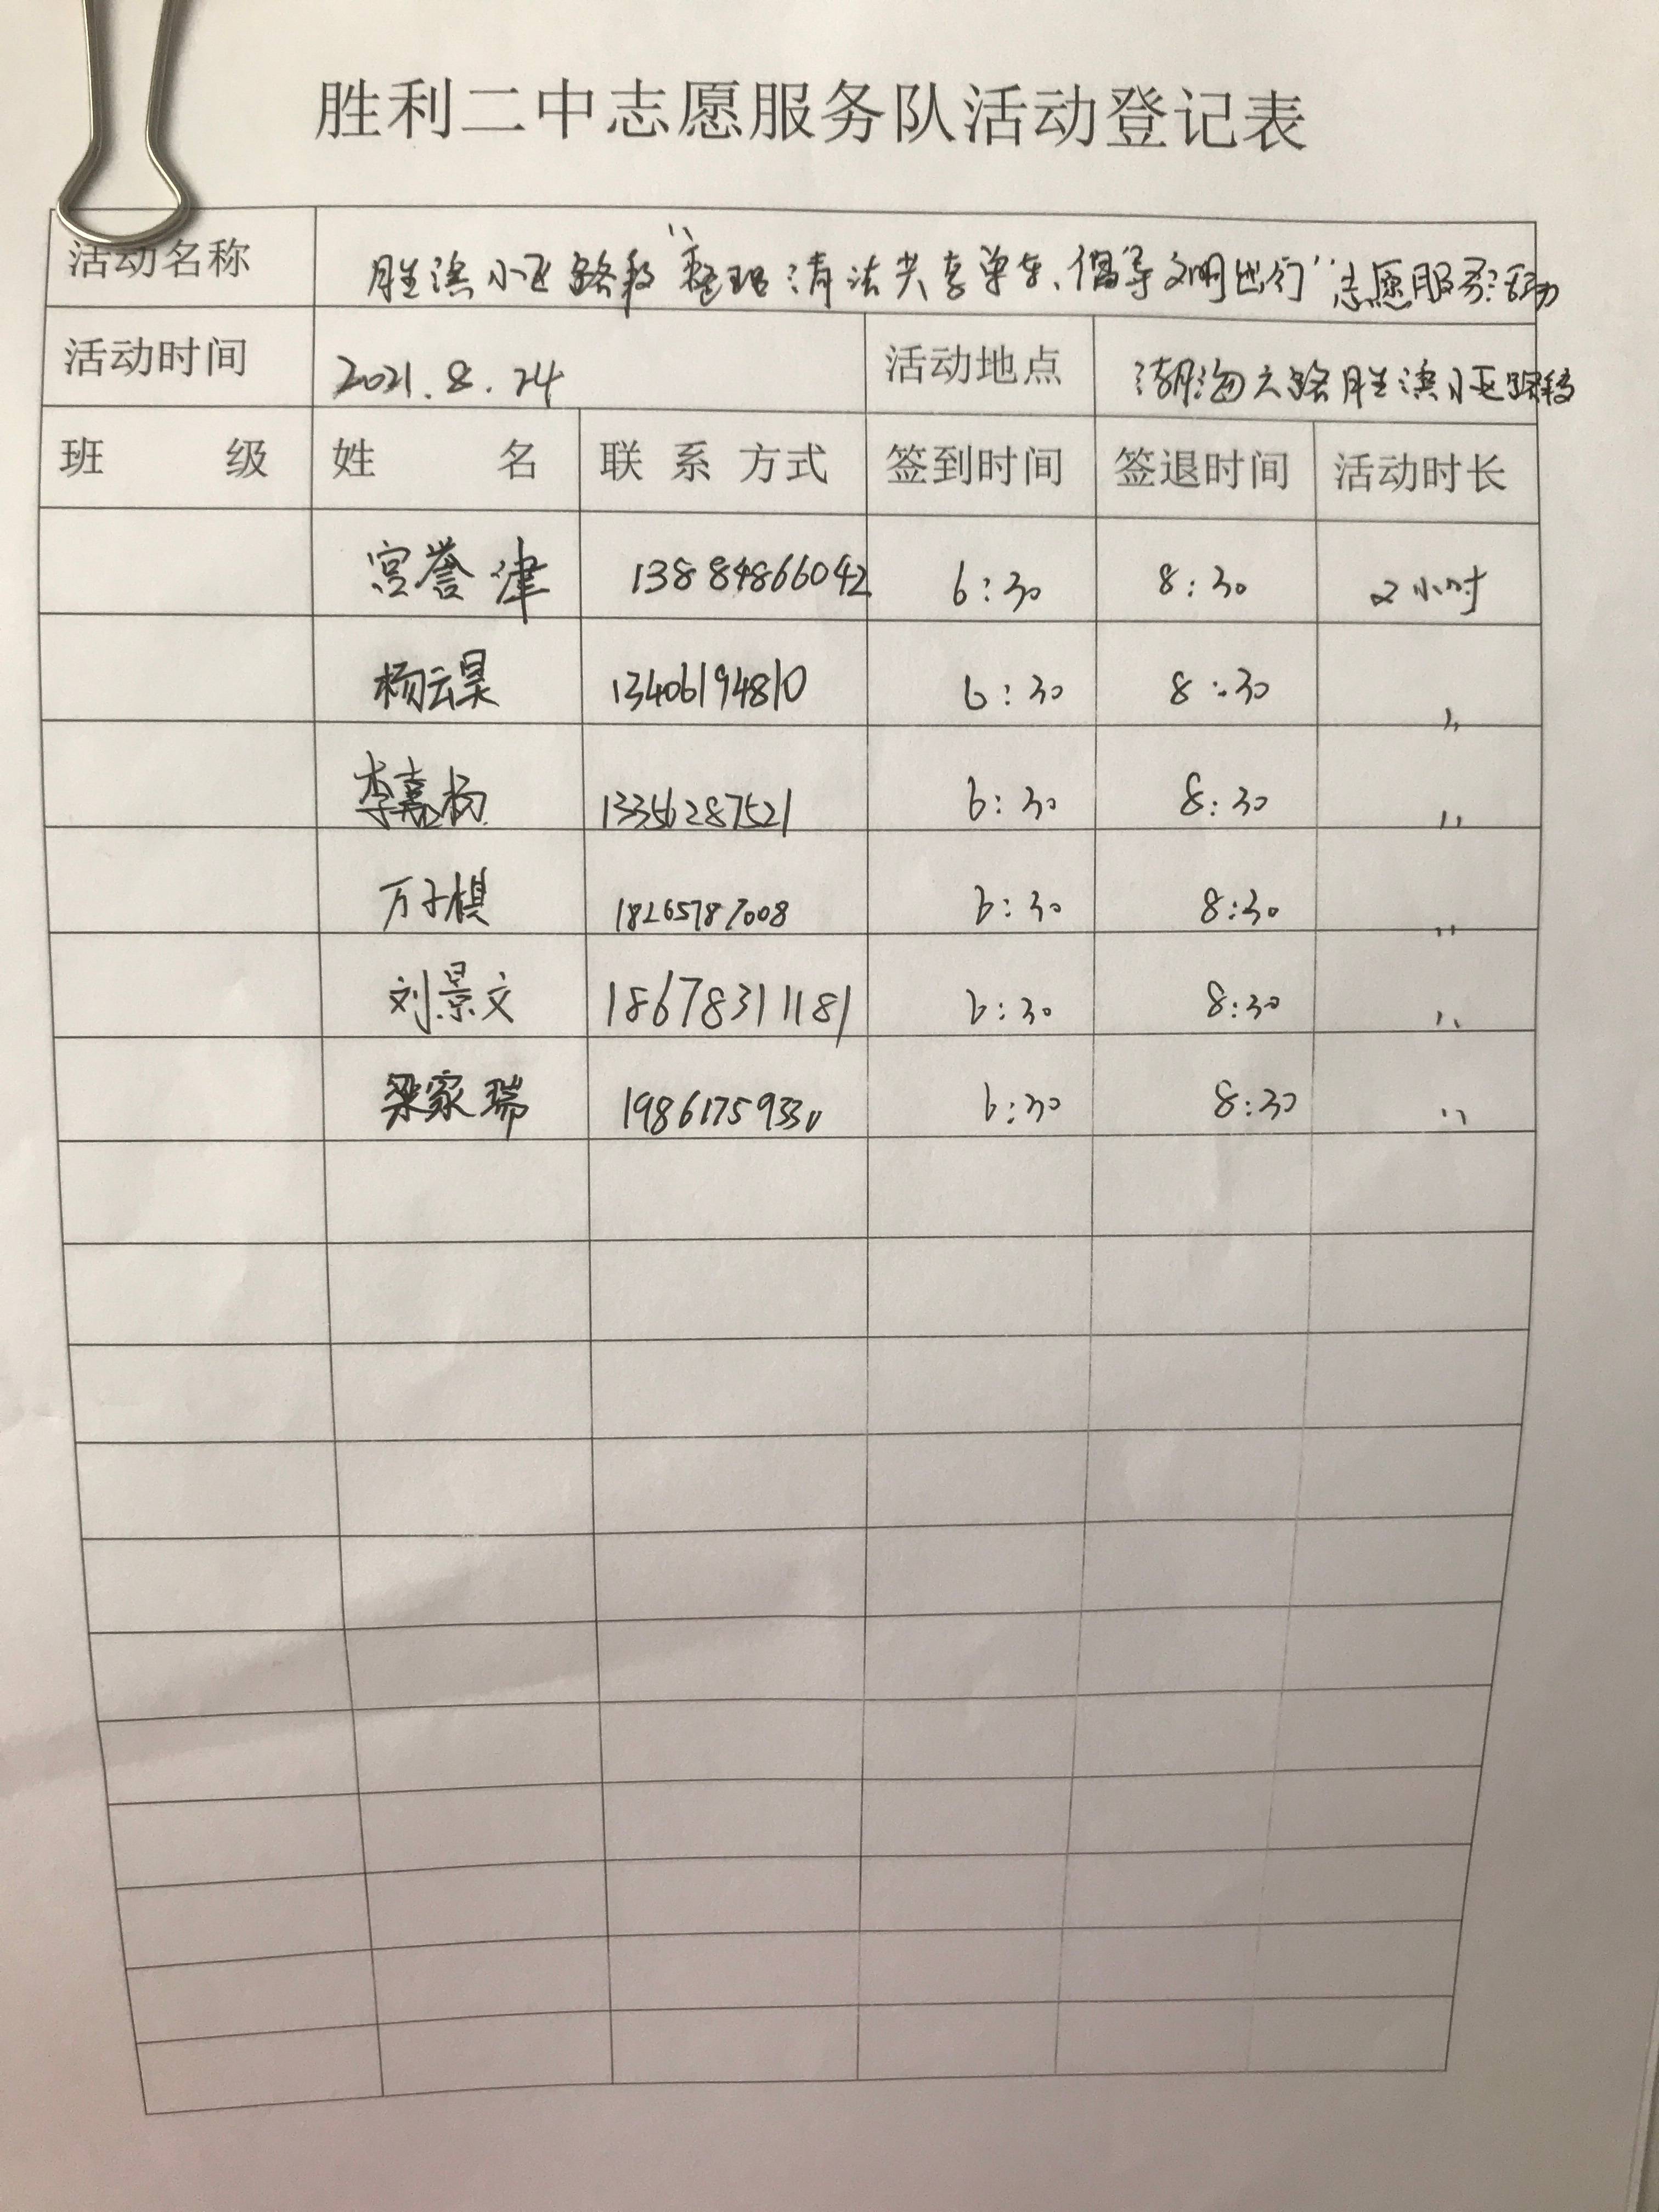 胜利二中志愿服务队活动登记表
活动名称 胜滨小区路段"整理清洁共享单车、倡导文明出行"志愿服务活动
活动时间 2021.8.24 活动地点 渤海六路胜滨小区路段
班 级 姓 名 联系方式 签到时间 签退时间 活动时长
宫誉津 13884866042 6:30 8:30 2小时
杨云昊 13406194810 6:30 8:30 〃
李嘉杨 13356287521 6:30 8:30 〃
万子棋 18265787008 6:30 8:30 〃
刘景文 18678311181 6:30 8:30 〃
梁家瑞 19861759330 6:30 8:30 〃